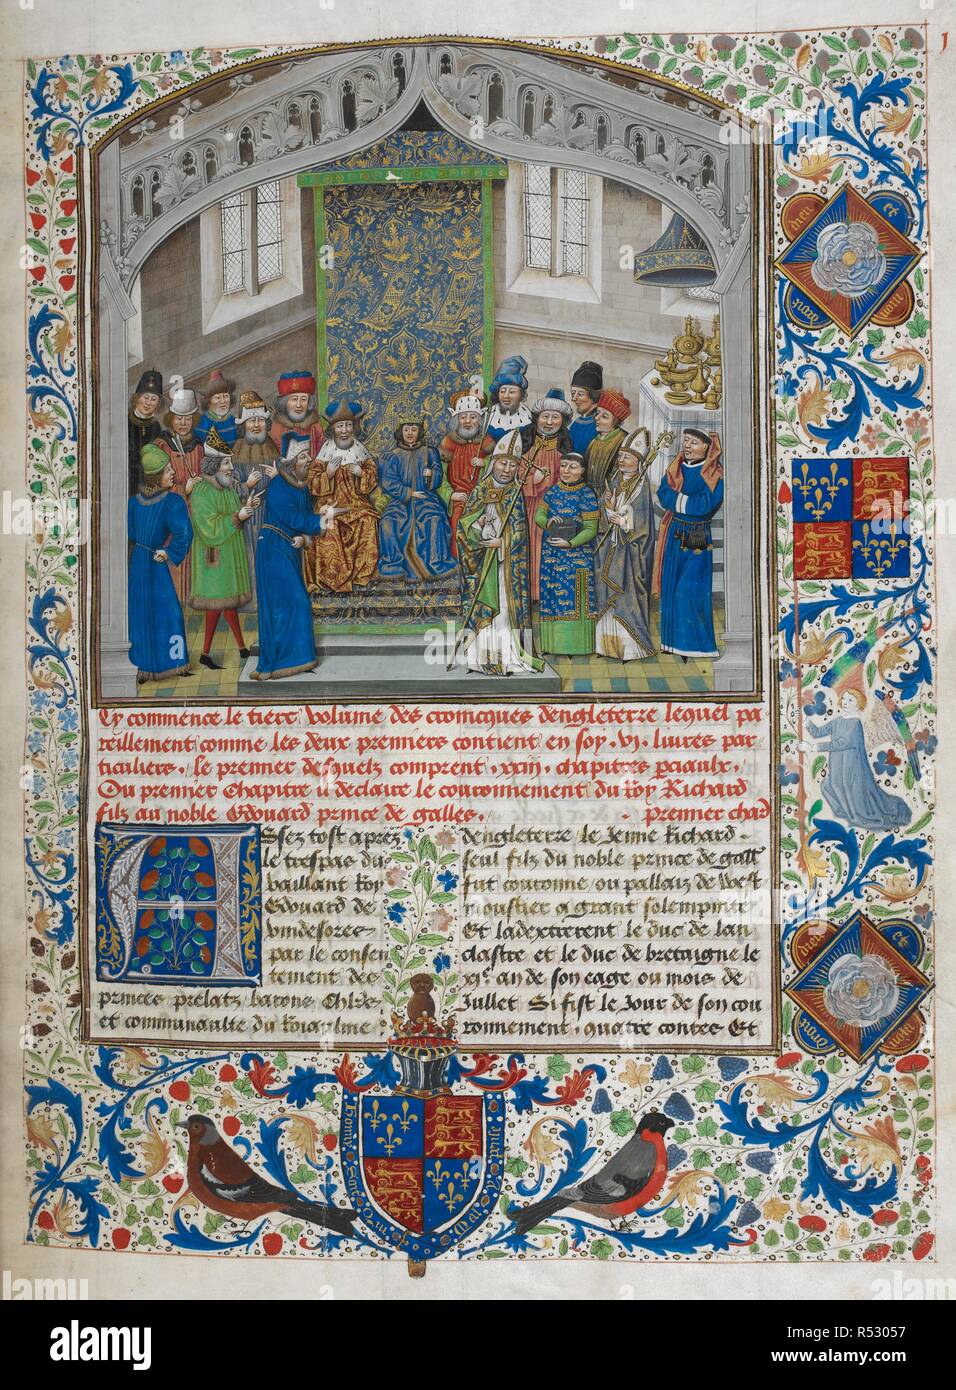 Cy commence le tiers volume des cronicques dengleterre lequel pa
reillement comme les deux premiers contient en soy .vi. liures par
ticuliers. le premier desquelz comprent .xxiii. chapitres perciaulx.
Ou premier chapitre il declaire le couronnement du Roy Richard
filz au noble Edouard prince de galles. premier chap
Assez tost apres
le trespas du
vaillant Roy
Edouard de
Vindesores
par le consen
tement des
princes prelatz barons
et communaulte du Royalme
dengleterre le Jeune Richard
seul filz du noble prince de gall
fut couronne ou pallaiz de West
moustier a grant solempnite
Et ladextrerent le duc de lan
clastre et le duc de bretaigne le
xi.e an de son eage ou mois de
Jullet Si fist le Jour de son cou
ronnement quatre contes Et
dieu et
mon
droit
dieu et
mon
droit
Honny soit qui mal y pense
alamy
alamy
Image ID: R53057
www.alamy.com